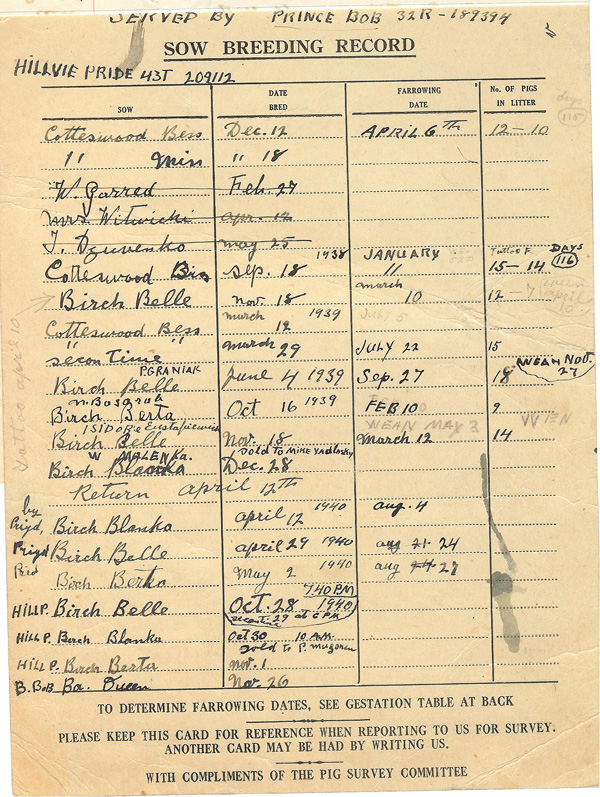 SERVED BY PRINCE BOB 32R-189394
SOW BREEDING RECORD
HILLVIE PRIDE 43T 209112
SOW DATE BRED FARROWING DATE No. OF PIGS IN LITTER
days 115
Cotteswood Bess Dec. 12 APRIL 6th 12-10
" Miss " 18
W. Garred Feb. 27
Mrs Witwicki apr. 12
may 25
Cotteswood Sep. 18 1938 JANUARY " 15-14 DAYS 116
Birch Belle nov. 18 march 10 12
Cotteswood Bess march 12 1939 July 5
secon Time " march 29 JULY 22 15
P. GRANIAK
Birch Belle June 4 1939 Sep. 27 18 WEAN NOV. 27
Birch Berta Oct 16 1939 FEB 10 9
ISIDORE WEAN MAY 3
Birch Belle Nov. 18 march 12 14
W MALENKA. Sold to MIKE
Birch Blanka Dec. 28
Return april 12th
Tattoo april 10
by Pryd, Birch Blanka april 12 1940 aug. 4
Pryd Birch Belle april 29 1940 aug 21 24
Prid Birch Berta May 2 1940 aug 24 27
7.40 PM
HILL P. Birch Belle Oct. 28 1940
29 at 6 PM
HILL P. Birch Blanka Oct 30 10 A.M.
Sold to P.
HILL P. Birch Berta Nov. 1
B. Bob Ba. Queen Nov. 26
TO DETERMINE FARROWING DATES, SEE GESTATION TABLE AT BACK
PLEASE KEEP THIS CARD FOR REFERENCE WHEN REPORTING TO US FOR SURVEY.
ANOTHER CARD MAY BE HAD BY WRITING US.
WITH COMPLIMENTS OF THE PIG SURVEY COMMITTEE